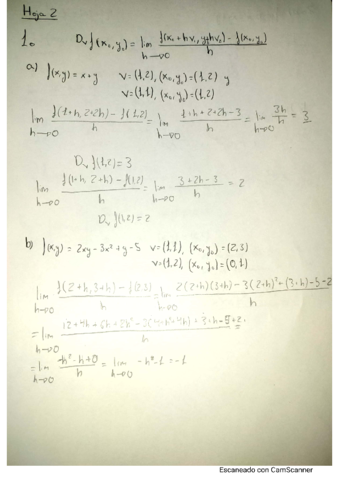 Hoja 2
1. D_v f(x₀,y₀) = lim_{h→0} (f(x₀+hv₁, y₀+hv₂) - f(x₀,y₀))/h
a) f(x,y) = x+y V=(1,2), (x₀,y₀)=(1,2) y
V=(1,1), (x₀,y₀)=(1,2)
lim_{h→0} (f(1+h, 2+2h) - f(1,2))/h = lim_{h→0} (1+h+2+2h-3)/h = lim_{h→0} 3h/h = 3
D_v f(1,2) = 3
lim_{h→0} (f(1+h, 2+h) - f(1,2))/h = lim_{h→0} (3+2h-3)/h = 2
D_v f(1,2) = 2
b) f(x,y) = 2xy-3x²+y-5 V=(1,1), (x₀,y₀)=(2,3)
V=(1,2), (x₀,y₀)=(0,1)
lim_{h→0} (f(2+h, 3+h) - f(2,3))/h = lim_{h→0} (2(2+h)(3+h) - 3(2+h)²+(3+h)-5+2)/h
= lim_{h→0} /h =
= lim_{h→0} (-h²-h+0)/h = lim_{h→0} = -1
Escaneado con CamScanner